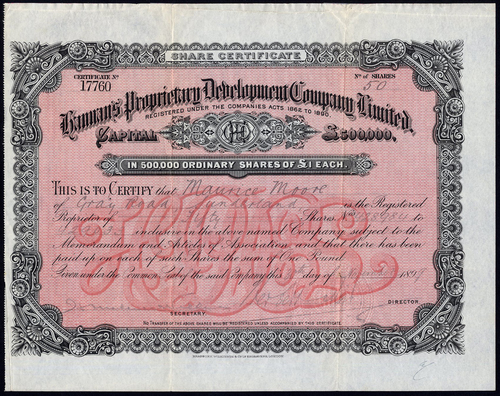 SHARE CERTIFICATE
CERTIFICATE No
17760
No OF SHARES
50
Hannan's Proprietary Development Company Limited.
REGISTERED UNDER THE COMPANIES ACTS 1862 TO 1890.
CAPITAL £500,000.
IN 500,000 ORDINARY SHARES OF £1 EACH.
THIS IS TO CERTIFY that Maurice Moore
of Gray Road Sunderland is the Registered
Proprietor of Fifty Shares No to
inclusive in the above named Company subject to the
Memorandum and Articles of Association and that there has been
paid up on each of such Shares the sum of One Pound
Given under the Common Seal of the said Company this day of 189
DIRECTOR.
SECRETARY.
NO TRANSFER OF THE ABOVE SHARES WILL BE REGISTERED UNLESS ACCOMPANIED BY THIS CERTIFICATE.